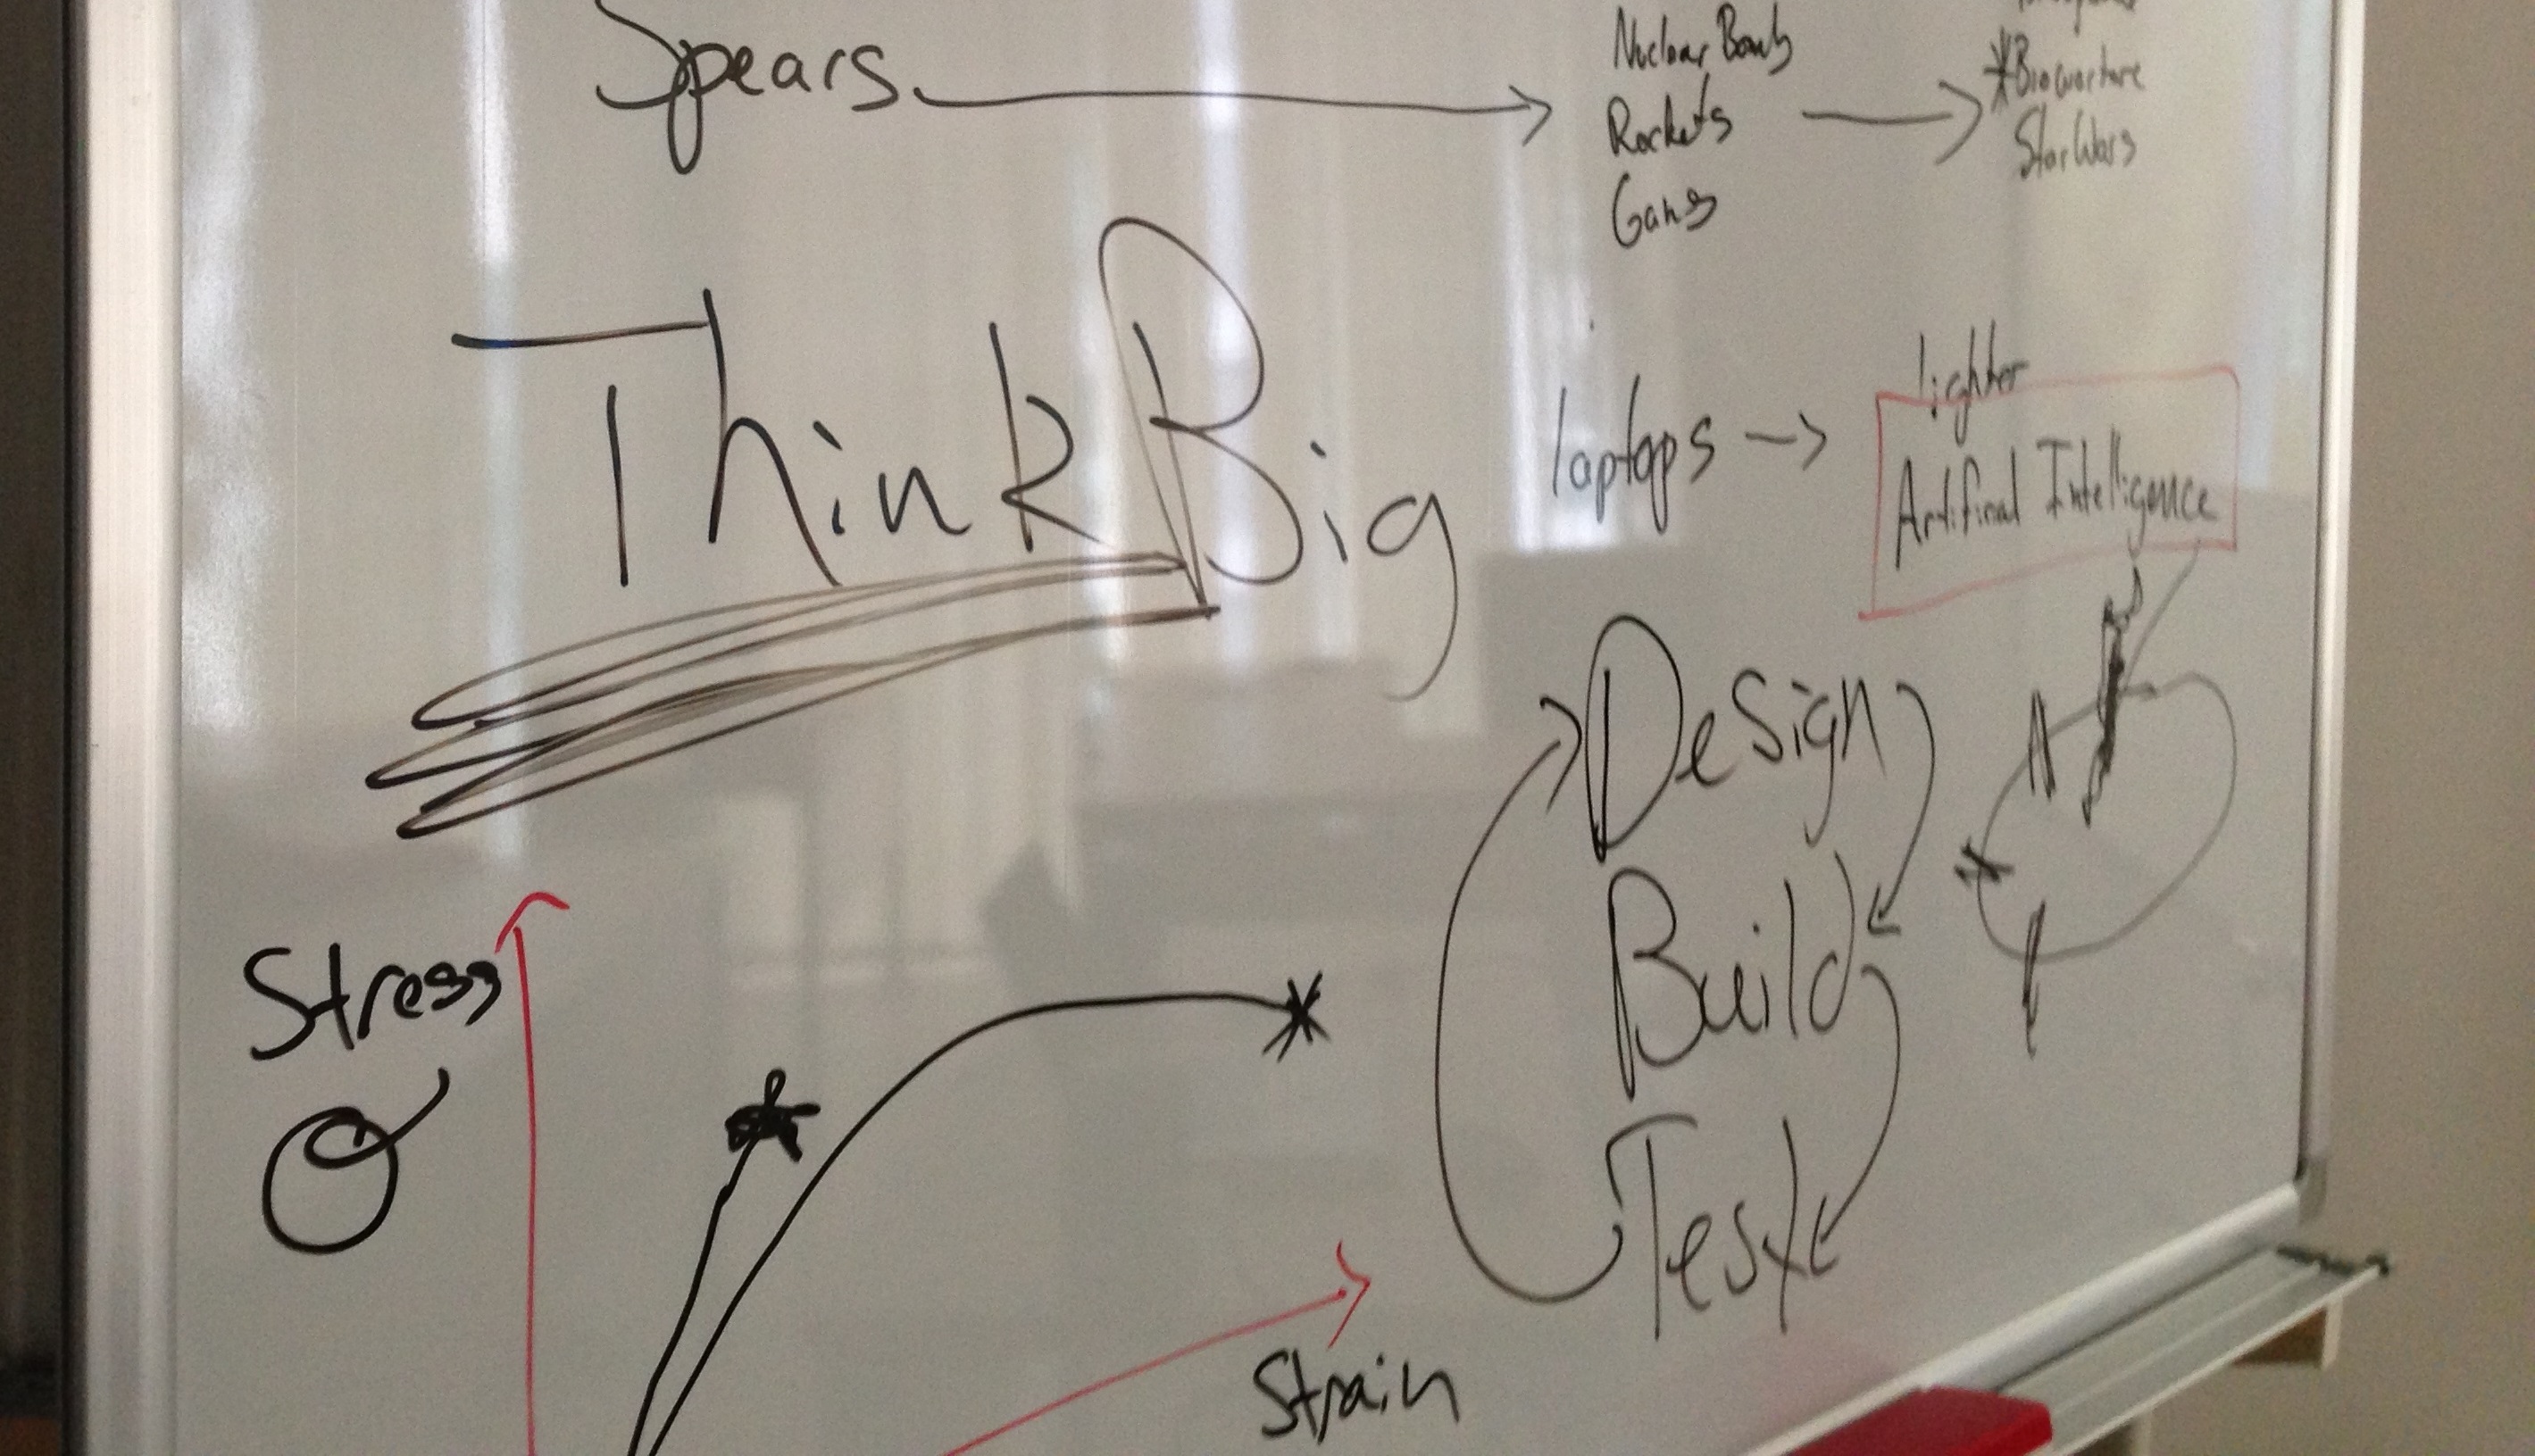 Spears
Nuclear Bombs
Rockets
Guns
*Biowarfare
Star Wars
Think Big
laptops
lighter
Artifinal Intelligence
Design
Build
Test
Stress
Strain